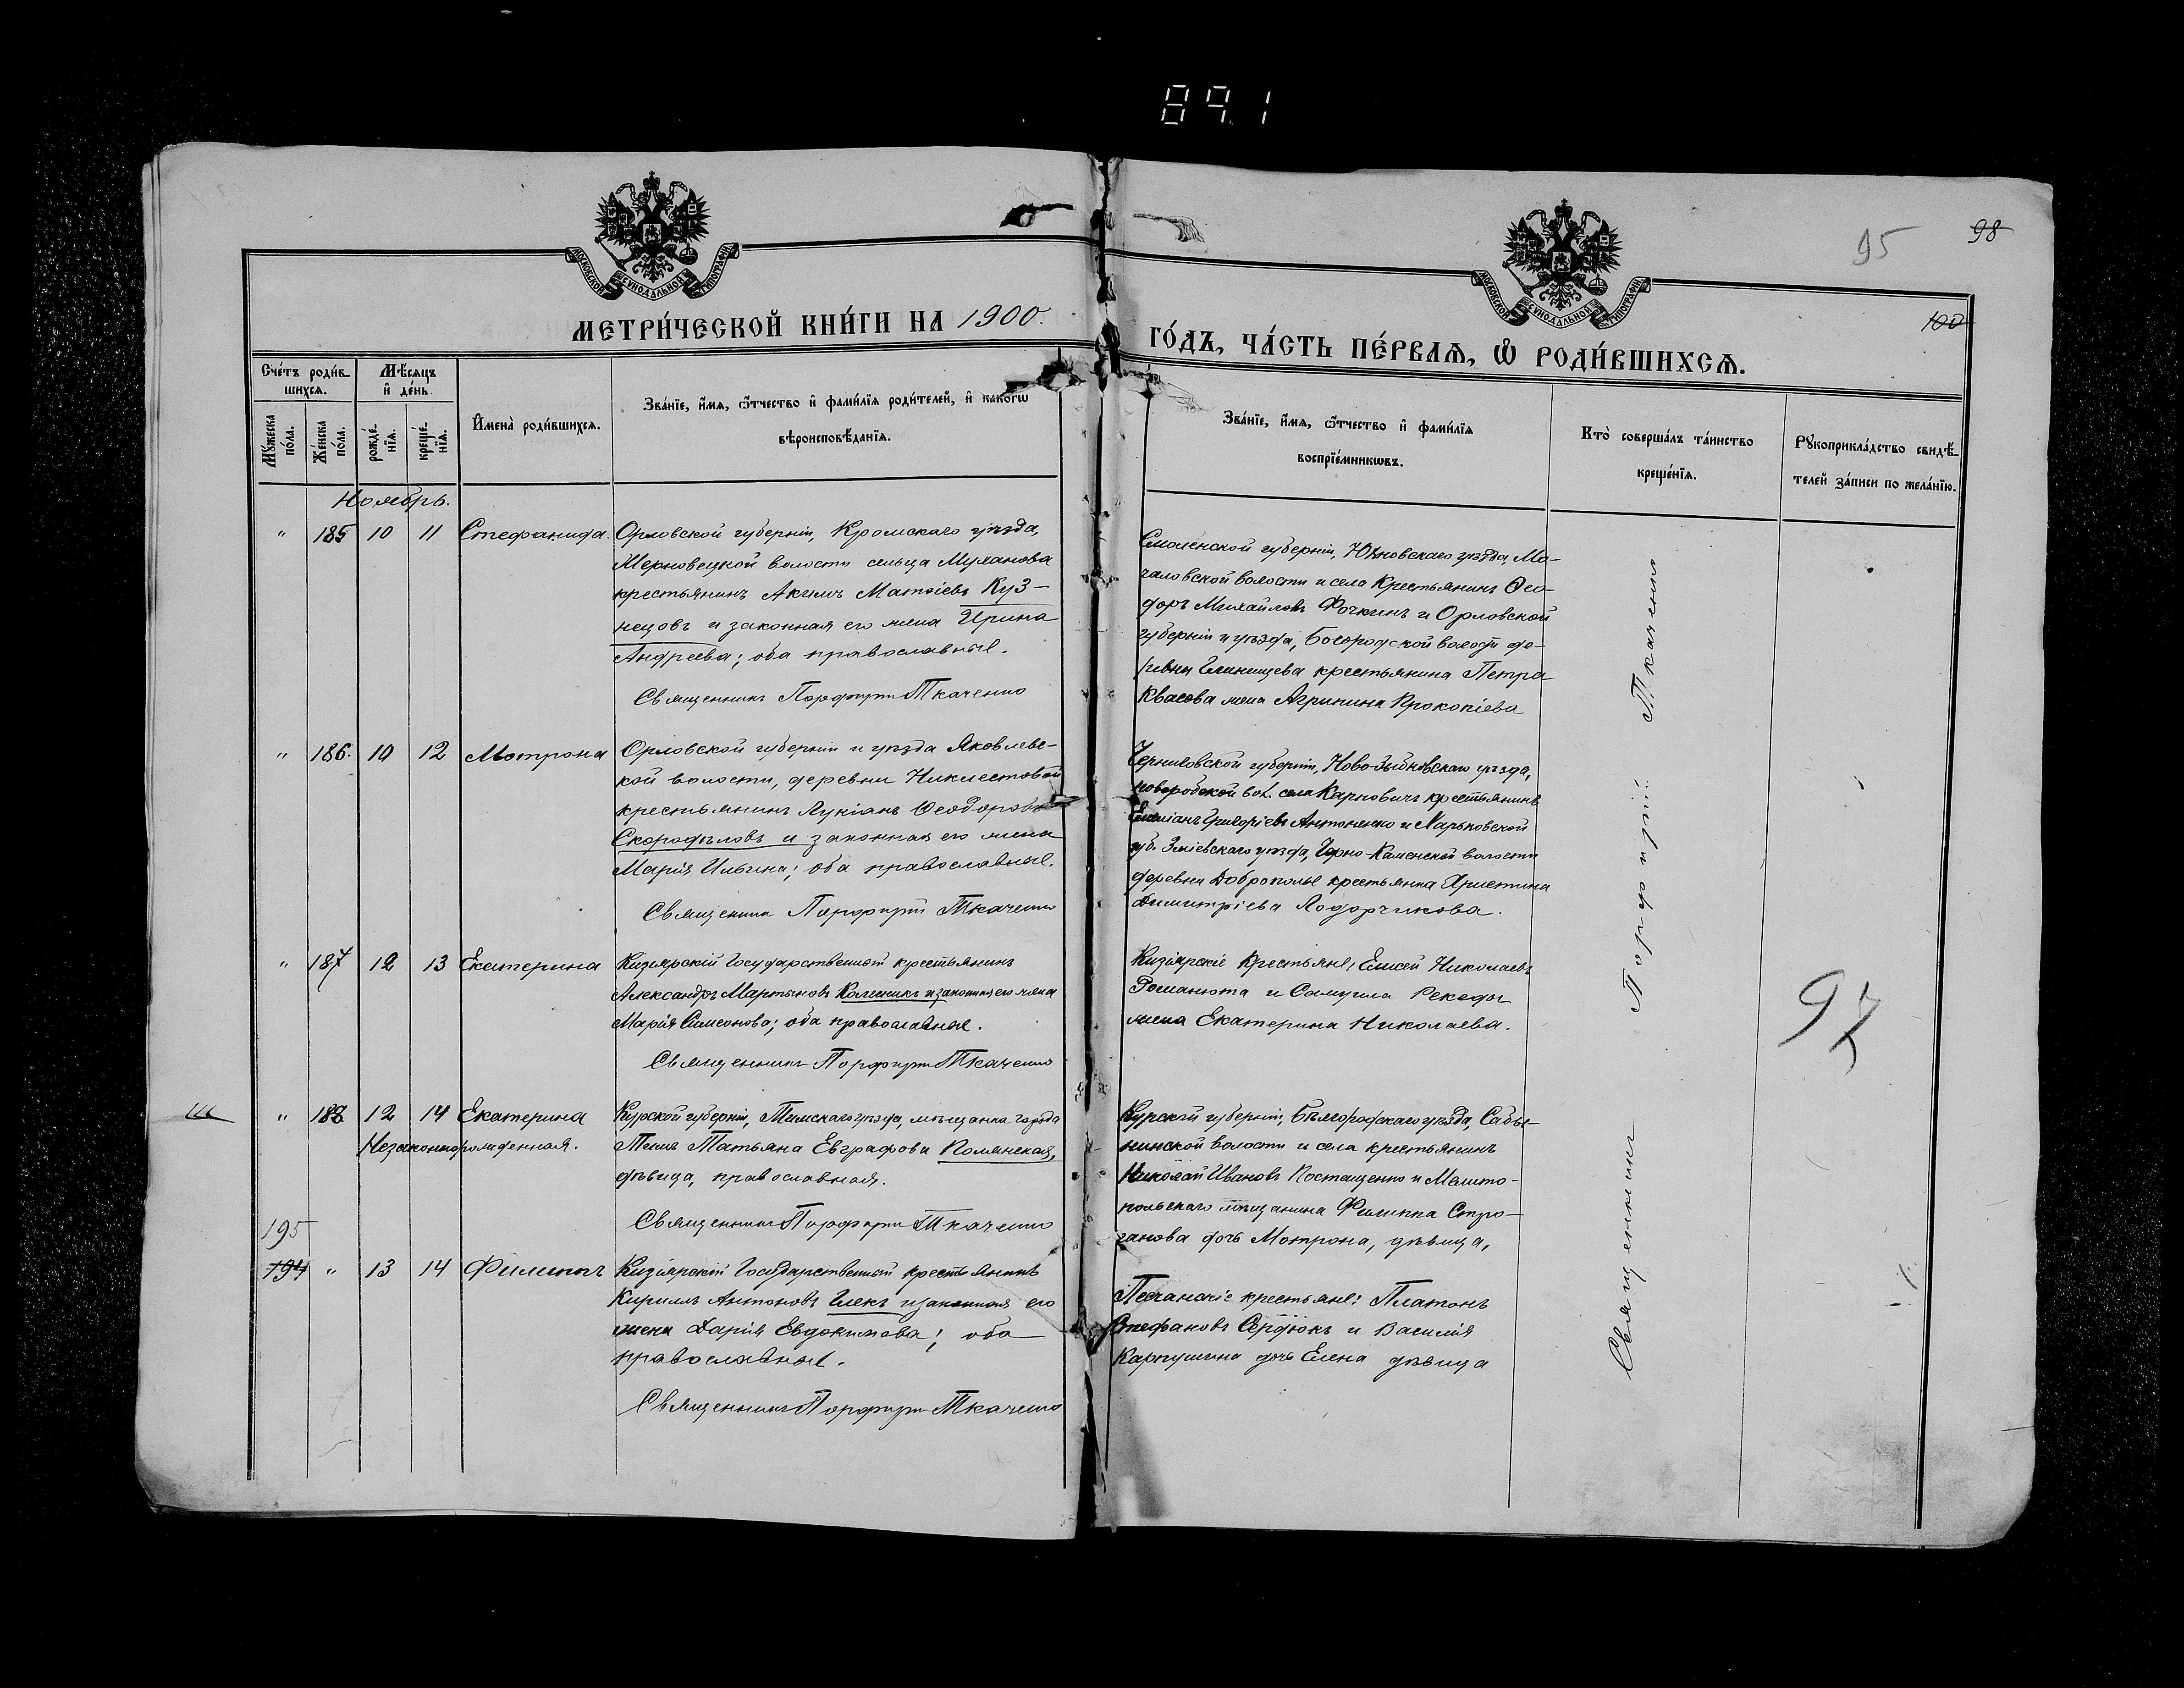 891
95
98
100
МЕТРИ́ЧЕСКОЙ КНИ́ГИ НА 1900.
ГО́ДЪ, ЧА́СТЬ ПЕ́РВАѦ, Ѡ҆ РОДИ́ВШИХСѦ.
МОСКОВСКОЙ СѴНОДАЛЬНОЙ ТИПОГРАФІИ
МОСКОВСКОЙ СѴНОДАЛЬНОЙ ТИПОГРАФІИ
Сче́тъ роди́в-
шихсѧ.
Мꙋ́жеска по́ла.
Же́нска по́ла.
Мѣ́сѧцъ
и҆ де́нь.
рожде́-
нїѧ.
креще́-
нїѧ.
И҆мена̀ роди́вшихсѧ.
Зва́нїе, и҆́мѧ, ѻ҆́тчество и҆ фами́лїѧ роди́телей, и҆ како́гѡ
вѣроисповѣ́данїѧ.
Зва́нїе, и҆́мѧ, ѻ҆́тчество и҆ фами́лїѧ
воспрїе́мникѡвъ.
Кто̀ соверша́лъ та́инство
креще́нїѧ.
Рꙋкоприкла́дство свидѣ́-
телей за́писи по жела́нїю.
Ноябрь.
" 185 10 11 Стефанида.
Орловской губерніи, Кромскаго уѣзда,
волости сельца Муханова
крестьянинъ Акимъ Матѳіевъ Куз-
нецовъ и законная его жена Ирина
Андреева; оба православные.
Священникъ Порфирій Ткаченко
Смоленской губерніи, Юхновскаго уѣзда, Мо-
чаловской волости и села Крестьянинъ Ѳео-
доръ Михайловъ Фочкинъ и Орловской
губерніи и уѣзда, Богородской волости де-
ревни крестьянина Петра
Квасова жена Агрипина Прокопіева
" 186. 10 12 Мотрона
Орловской губерніи и уѣзда Яковлевс-
кой волости, деревни
крестьянинъ Лукіанъ Ѳеодоровъ
Скородѣловъ и законная его жена
Марія Ильина; оба православные.
Священникъ Порфирій Ткаченко
Черниговской губерніи, Ново-Зыбковскаго уѣзда,
вол. села Карповичъ крестьянинъ
Емиліанъ Григоріевъ Антоненко и Харьковской
губ. Зміевскаго уѣзда, волости
деревни Доброполье крестьянка Христина
Димитріева
" 187 12 13 Екатерина
Кизіярскій Государственный крестьянинъ
Александръ Мартыновъ Колесникъ и законная его жена
Марія Симеонова; оба православные.
Священникъ Порфирій Ткаченко
Кизіярскіе Крестьяне, Елисей Николаевъ
и Самуила Рекеды
жена Екатерина Николаева.
97
" 188 12 14 Екатерина
Незаконнорожденная.
Курской губерніи, Тимскаго уѣзда, мѣщанка города
Тима Татьяна Евграфова Полянская,
дѣвица, православная.
Священникъ Порфирій Ткаченко
Курской губерніи, Бѣлгородскаго уѣзда, Сабы-
нинской волости и села крестьянинъ
Николай Ивановъ Костащенко и Мелито-
польскаго мѣщанина Филиппа Стро-
ганова дочь Мотрона, дѣвица,
195
194 " 13 14 Филиппъ
Кизіярскій Государственный крестьянинъ
Кириллъ Антоновъ Глекъ и законная его
жена Дарія Евдокимова; оба
православные.
Священникъ Порфирій Ткаченко
Песчанскіе крестьяне: Платонъ
Стефановъ Сердюкъ и Василія
Карпушина дочь Елена дѣвица
Священникъ Порфирій Ткаченко